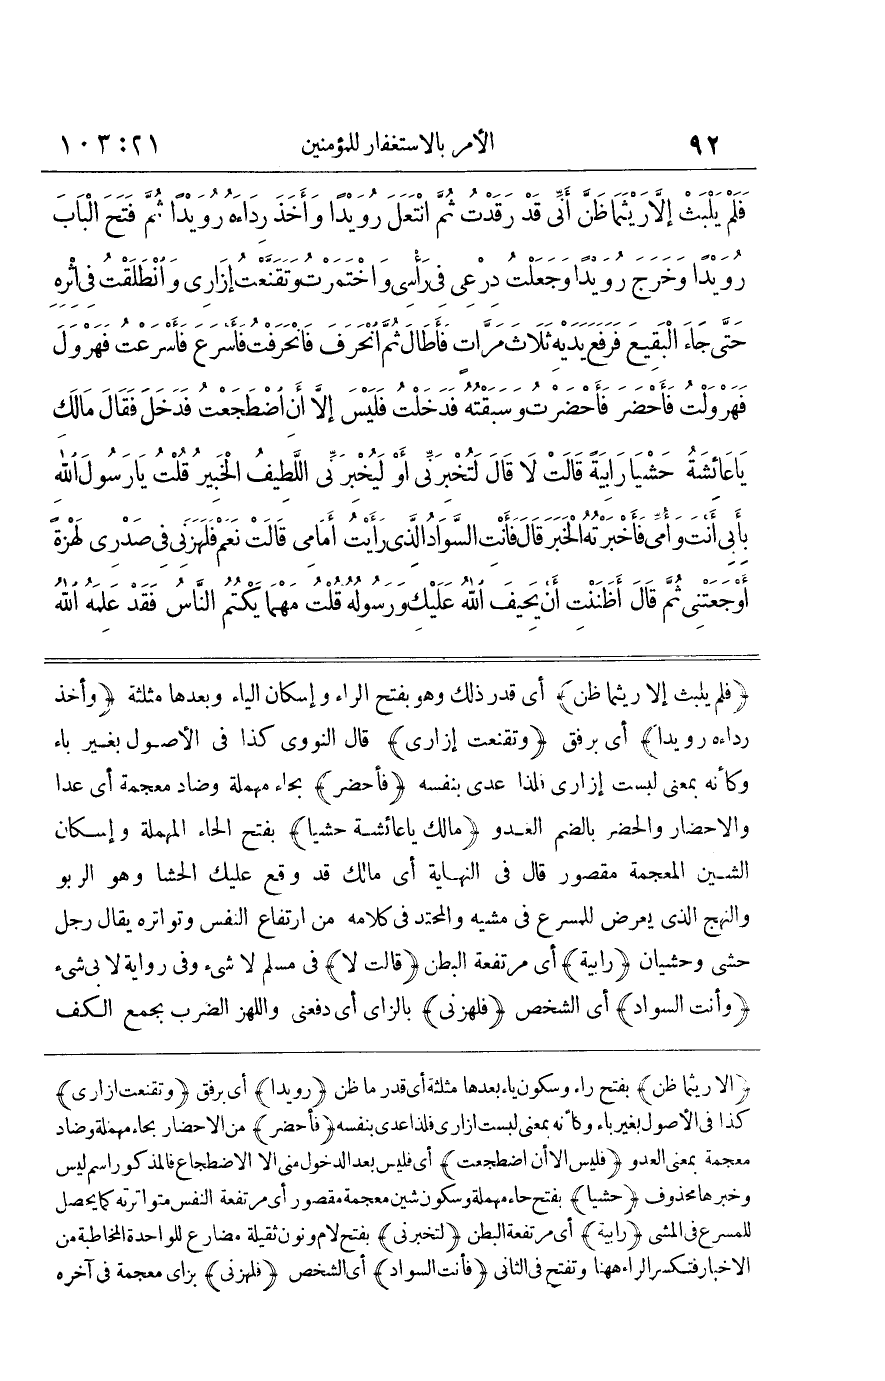 ٩٢ الأمر بالاستغفار للمؤمنين ٢١ : ١٠٣
فَلَمْ يَلْبَثْ إِلَّا رَيْثَمَا ظَنَّ أَنِّى قَدْ رَقَدْتُ ثُمَّ انْتَعَلَ رُوَيْدًا وَأَخَذَ رِدَاءَهُ رُوَيْدًا ثُمَّ فَتَحَ الْبَابَ
رُوَيْدًا وَخَرَجَ رُوَيْدًا وَجَعَلْتُ دِرْعِى فِى رَأْسِى وَاخْتَمَرْتُ وَتَقَنَّعْتُ إِزَارِى وَانْطَلَقْتُ فِى أَثْرِهِ
حَتَّى جَاءَ الْبَقِيعَ فَرَفَعَ يَدَيْهِ ثَلَاثَ مَرَّاتٍ فَأَطَالَ ثُمَّ انْحَرَفَ فَانْحَرَفْتُ فَأَسْرَعَ فَأَسْرَعْتُ فَهَرْوَلَ
فَهَرْوَلْتُ فَأَحْضَرَ فَأَحْضَرْتُ وَسَبَقْتُهُ فَدَخَلْتُ فَلَيْسَ إِلَّا أَنِ اضْطَجَعْتُ فَدَخَلَ فَقَالَ مَالَكِ
يَاعَائِشَةُ حَشْيَا رَابِيَةً قَالَتْ لَا قَالَ لَتُخْبِرَنِّى أَوْ لَيُخْبِرَنِّى اللَّطِيفُ الْخَبِيرُ قُلْتُ يَارَسُولَ اللّٰهِ
بِأَبِى أَنْتَ وَأُمِّى فَأَخْبَرْتُهُ الْخَبَرَ قَالَ فَأَنْتِ السَّوَادُ الَّذِى رَأَيْتُ أَمَامِى قَالَتْ نَعَمْ فَلَهَزَنِى فِى صَدْرِى لَهْزَةً
أَوْجَعَتْنِى ثُمَّ قَالَ أَظَنَنْتِ أَنْ يَحِيفَ اللّٰهُ عَلَيْكِ وَرَسُولُهُ قُلْتُ مَهْمَا يَكْتُمُ النَّاسُ فَقَدْ عَلِمَهُ اللّٰهُ
﴿فلم يلبث إلا ريثما ظن﴾ أى قدر ذلك وهو بفتح الراء وإسكان الياء وبعدها مثلثة ﴿وأخذ
رداءه رويدا﴾ أى برفق ﴿وتقنعت إزارى﴾ قال النووى كذا فى الأصول بغير باء
وكأنه بمعنى لبست إزارى فلذا عدى بنفسه ﴿فأحضر﴾ بحاء مهملة وضاد معجمة أى عدا
والاحضار والحضر بالضم العدو ﴿مالك ياعائشة حشيا﴾ بفتح الحاء المهملة وإسكان
الشين المعجمة مقصور قال فى النهاية أى مالك قد وقع عليك الحشا وهو الربو
والنهج الذى يعرض للمسرع فى مشيه والمحتد فى كلامه من ارتفاع النفس وتواتره يقال رجل
حشى وحشيان ﴿رابية﴾ أى مرتفعة البطن ﴿قالت لا﴾ فى مسلم لا شىء وفى رواية لا بى شىء
﴿وأنت السواد﴾ أى الشخص ﴿فلهزنى﴾ بالزاى أى دفعنى واللهز الضرب بجمع الكف
﴿الا ريثما ظن﴾ بفتح راء وسكون ياء بعدها مثلثة أى قدر ما ظن ﴿رويدا﴾ أى برفق ﴿وتقنعت ازارى﴾
كذا فى الأصول بغير باء وكأنه بمعنى لبست ازارى فلذا عدى بنفسه ﴿فأحضر﴾ من الاحضار بحاء مهملة وضاد
معجمة بمعنى العدو ﴿فليس الا أن اضطجعت﴾ أى فليس بعد الدخول منى الا الاضطجاع فالمذكور اسم ليس
وخبرها محذوف ﴿حشيا﴾ بفتح حاء مهملة وسكون شين معجمة مقصور أى مرتفعة النفس متواترته كما يحصل
للمسرع فى المشى ﴿رابية﴾ أى مرتفعة البطن ﴿لتخبرنى﴾ بفتح لام ونون ثقيلة مضارع للواحدة المخاطبة من
الاخبار فتكسر الراء ههنا وتفتح فى الثانى ﴿فأنت السواد﴾ أى الشخص ﴿فلهزنى﴾ بزاى معجمة فى آخره